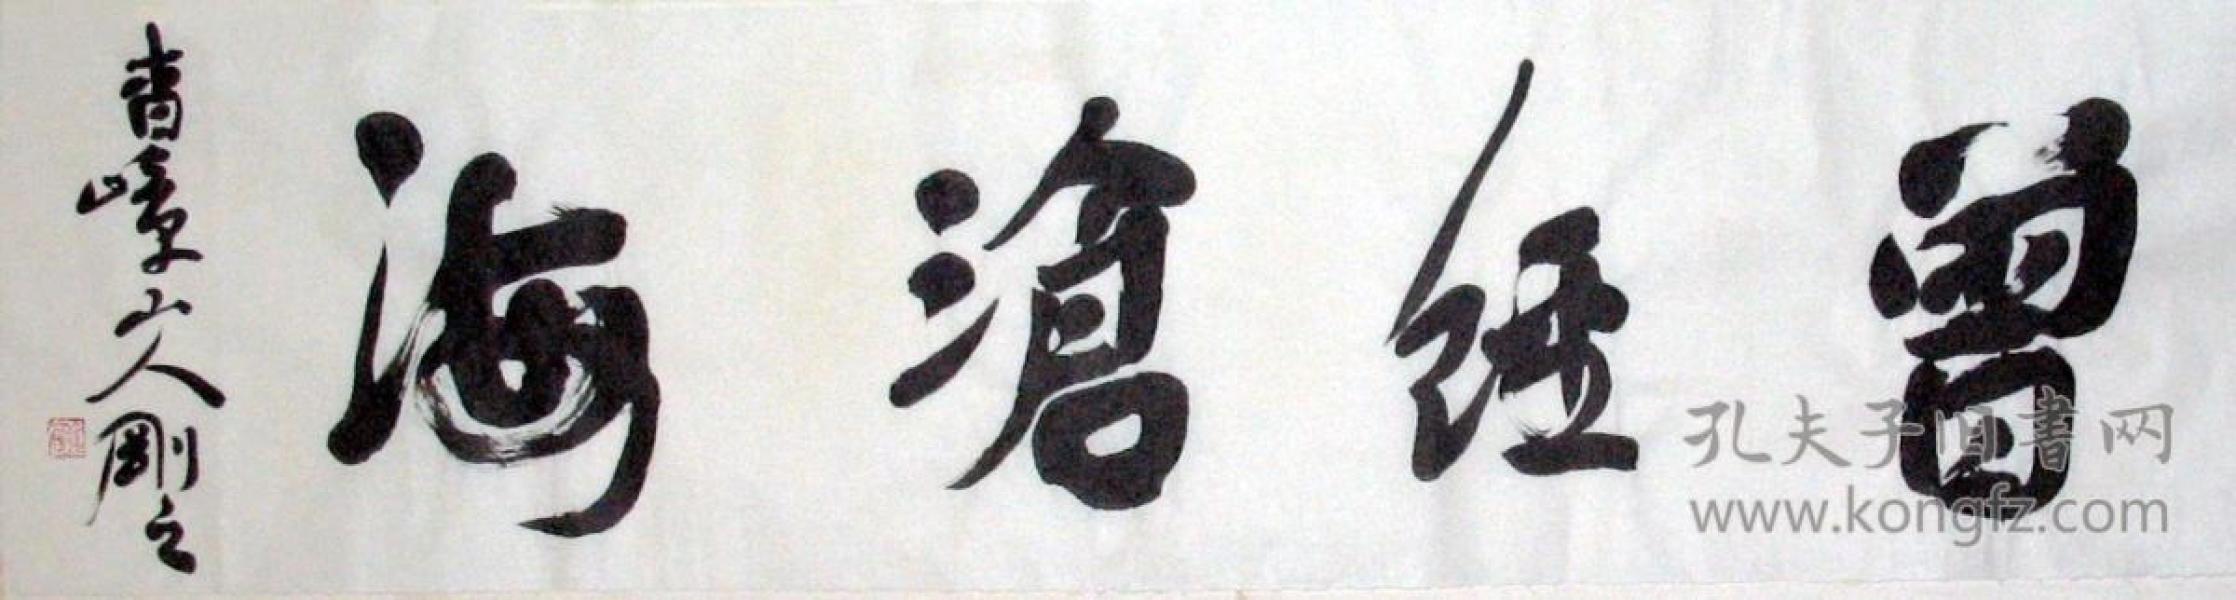 曾經滄海
青嶂山人剛之
孔夫子旧书网
www.kongfz.com